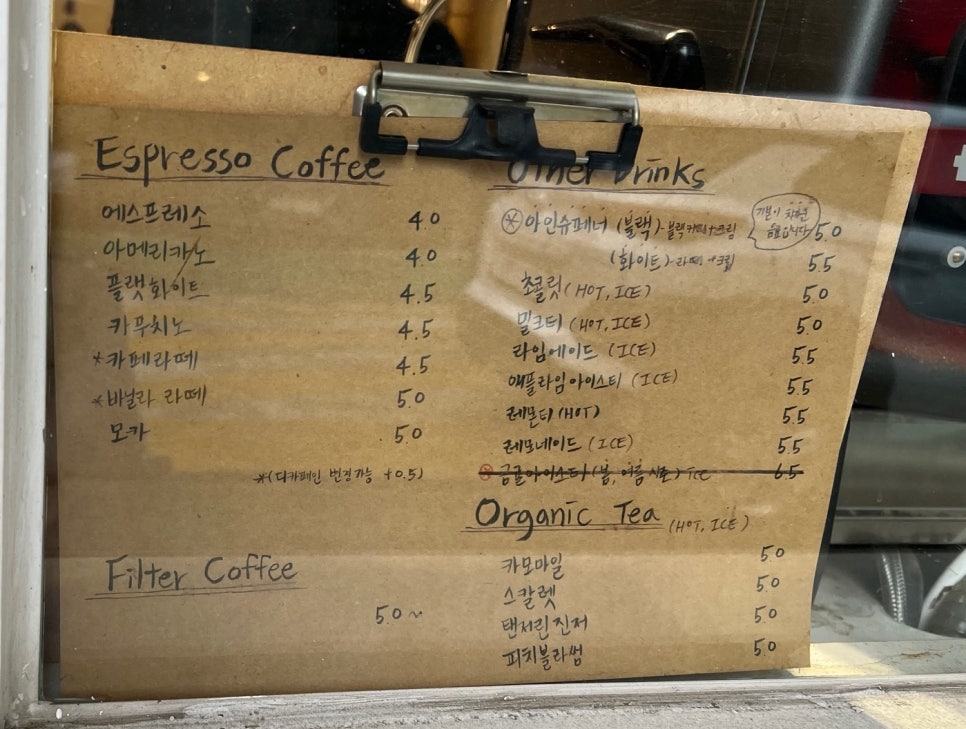 Espresso Coffee
에스프레소 4.0
아메리카노 4.0
플랫화이트 4.5
카푸치노 4.5
*카페라떼 4.5
*바닐라 라떼 5.0
모카 5.0
*(디카페인 변경가능 +0.5)
Filter Coffee
5.0~
Other Drinks
아인슈페너 (블랙)-블랙커피+크림 5.0
음료입니다
(화이트)-라떼+크림 5.5
초콜릿 (HOT, ICE) 5.0
밀크티 (HOT, ICE) 5.0
라임에이드 (ICE) 5.5
애플라임아이스티 (ICE) 5.5
레몬티 (HOT) 5.5
레모네이드 (ICE) 5.5
금귤아이스티 (봄, 여름 시즌) ICE 6.5
Organic Tea (HOT, ICE)
카모마일 5.0
스칼렛 5.0
탠저린진저 5.0
피치블라썸 5.0